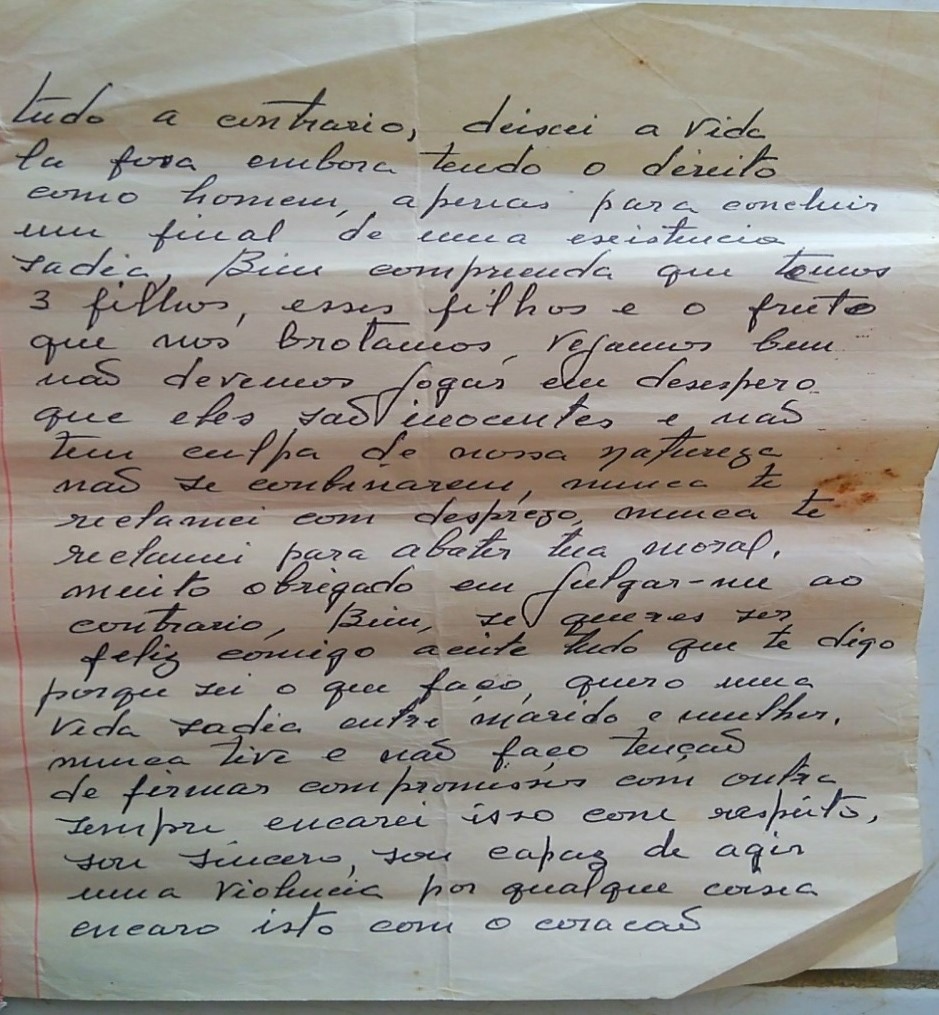 tudo a contrario, deixei a vida
la fora embora tendo o direito
como homem, apenas para concluir
um final de uma existencia
sadia, Bem compreenda que temos
3 filhos, esses filhos e o fruto
que nos brotamos, vejamos bem
não devemos jogar em desespero
que eles são inocentes e não
tem culpa de nossa natureza
não se conbinarem, nunca te
reclamei com desprezo, nunca te
reclamei para abater tua moral.
muito obrigado em julgar-me ao
contrario, Bem, se queres ser
feliz comigo aceite tudo que te digo
porque sei o que faço, quero uma
vida sadia entre marido e mulher.
nunca tive e não faço tenção
de firmar compromissos com outra
sempre encarei isso com respeito,
sou sincero, sou capaz de agir
uma violencia por qualque coisa
encaro isto com o coracão